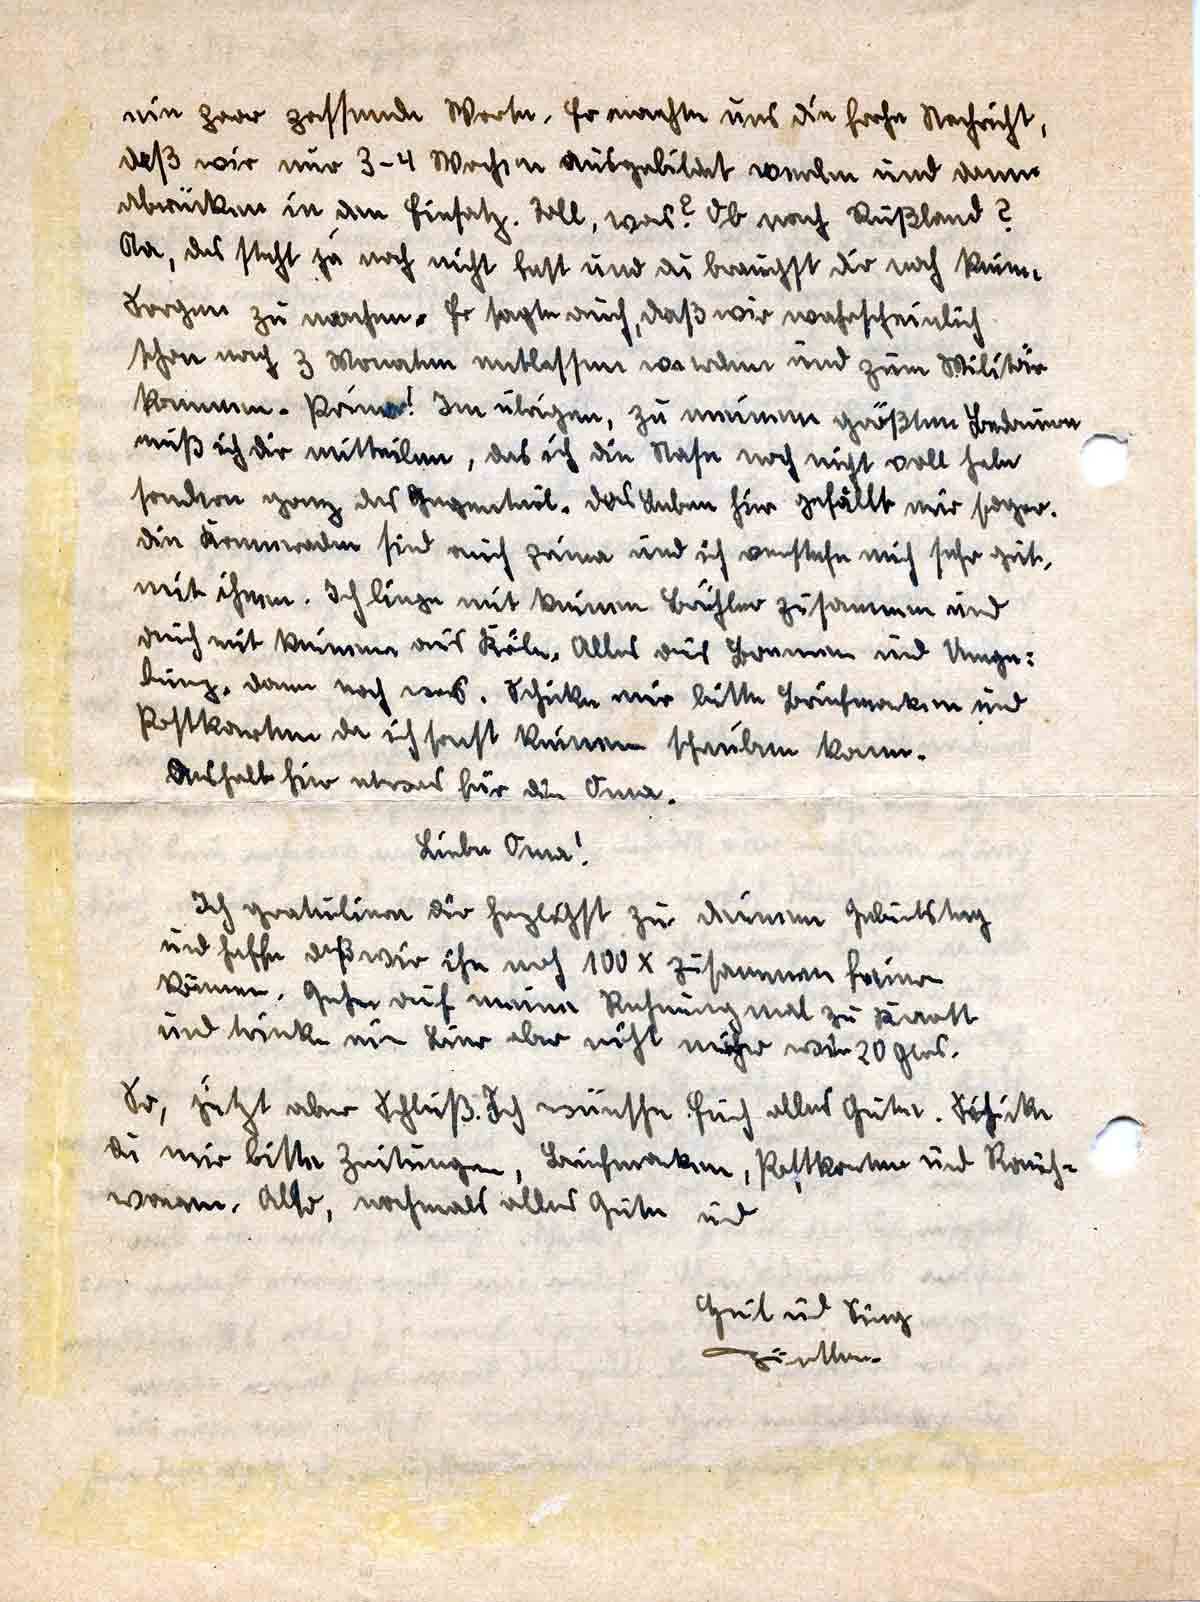 ein paar passende Worte. Er machte uns die frohe Nachricht,
daß wir nur 3-4 Wochen ausgebildet werden und dann
abrücken in den Einsatz. Toll, was? Ob nach Rußland?
Na, das steht ja noch nicht fest und du brauchst dir noch keine
Sorgen zu machen. Er sagte auch, daß wir wahrscheinlich
schon nach 3 Monaten entlassen werden und zum Militär
kommen. Prima! Im übrigen, zu meinem größten Bedauern
muß ich dir mitteilen, das ich die Nase noch nicht voll habe
sondern ganz das Gegenteil. Das Leben hier gefällt mir sogar.
die Kameraden sind auch prima und ich verstehe mich sehr gut,
mit ihnen. Ich liege mit keinem Brühler zusammen und
auch mit keinem aus Köln. Alles aus Bonn und Umge:
bung. dann noch was. Schicke mir bitte Briefmarken und
Postkarten da ich sonst keinem schreiben kann.
Deshalb hier etwas für die Oma.
Liebe Oma!
Ich gratuliere dir herzlichst zu deinem Geburtstag
und hoffe daß wir ihn noch 100 x zusammen feiern
können. Gehe auf meine Rechnung mal zu
und trinke ein Bier aber nicht mehr wie 20 Glas.
So, jetzt aber Schluß. Ich wünsche Euch alles Gute. Schicke
du mir bitte Zeitungen, Briefmarken, Postkarten und Rauch-
waren. Also, nochmals alles Gute und
Heil und Sieg
Günther.